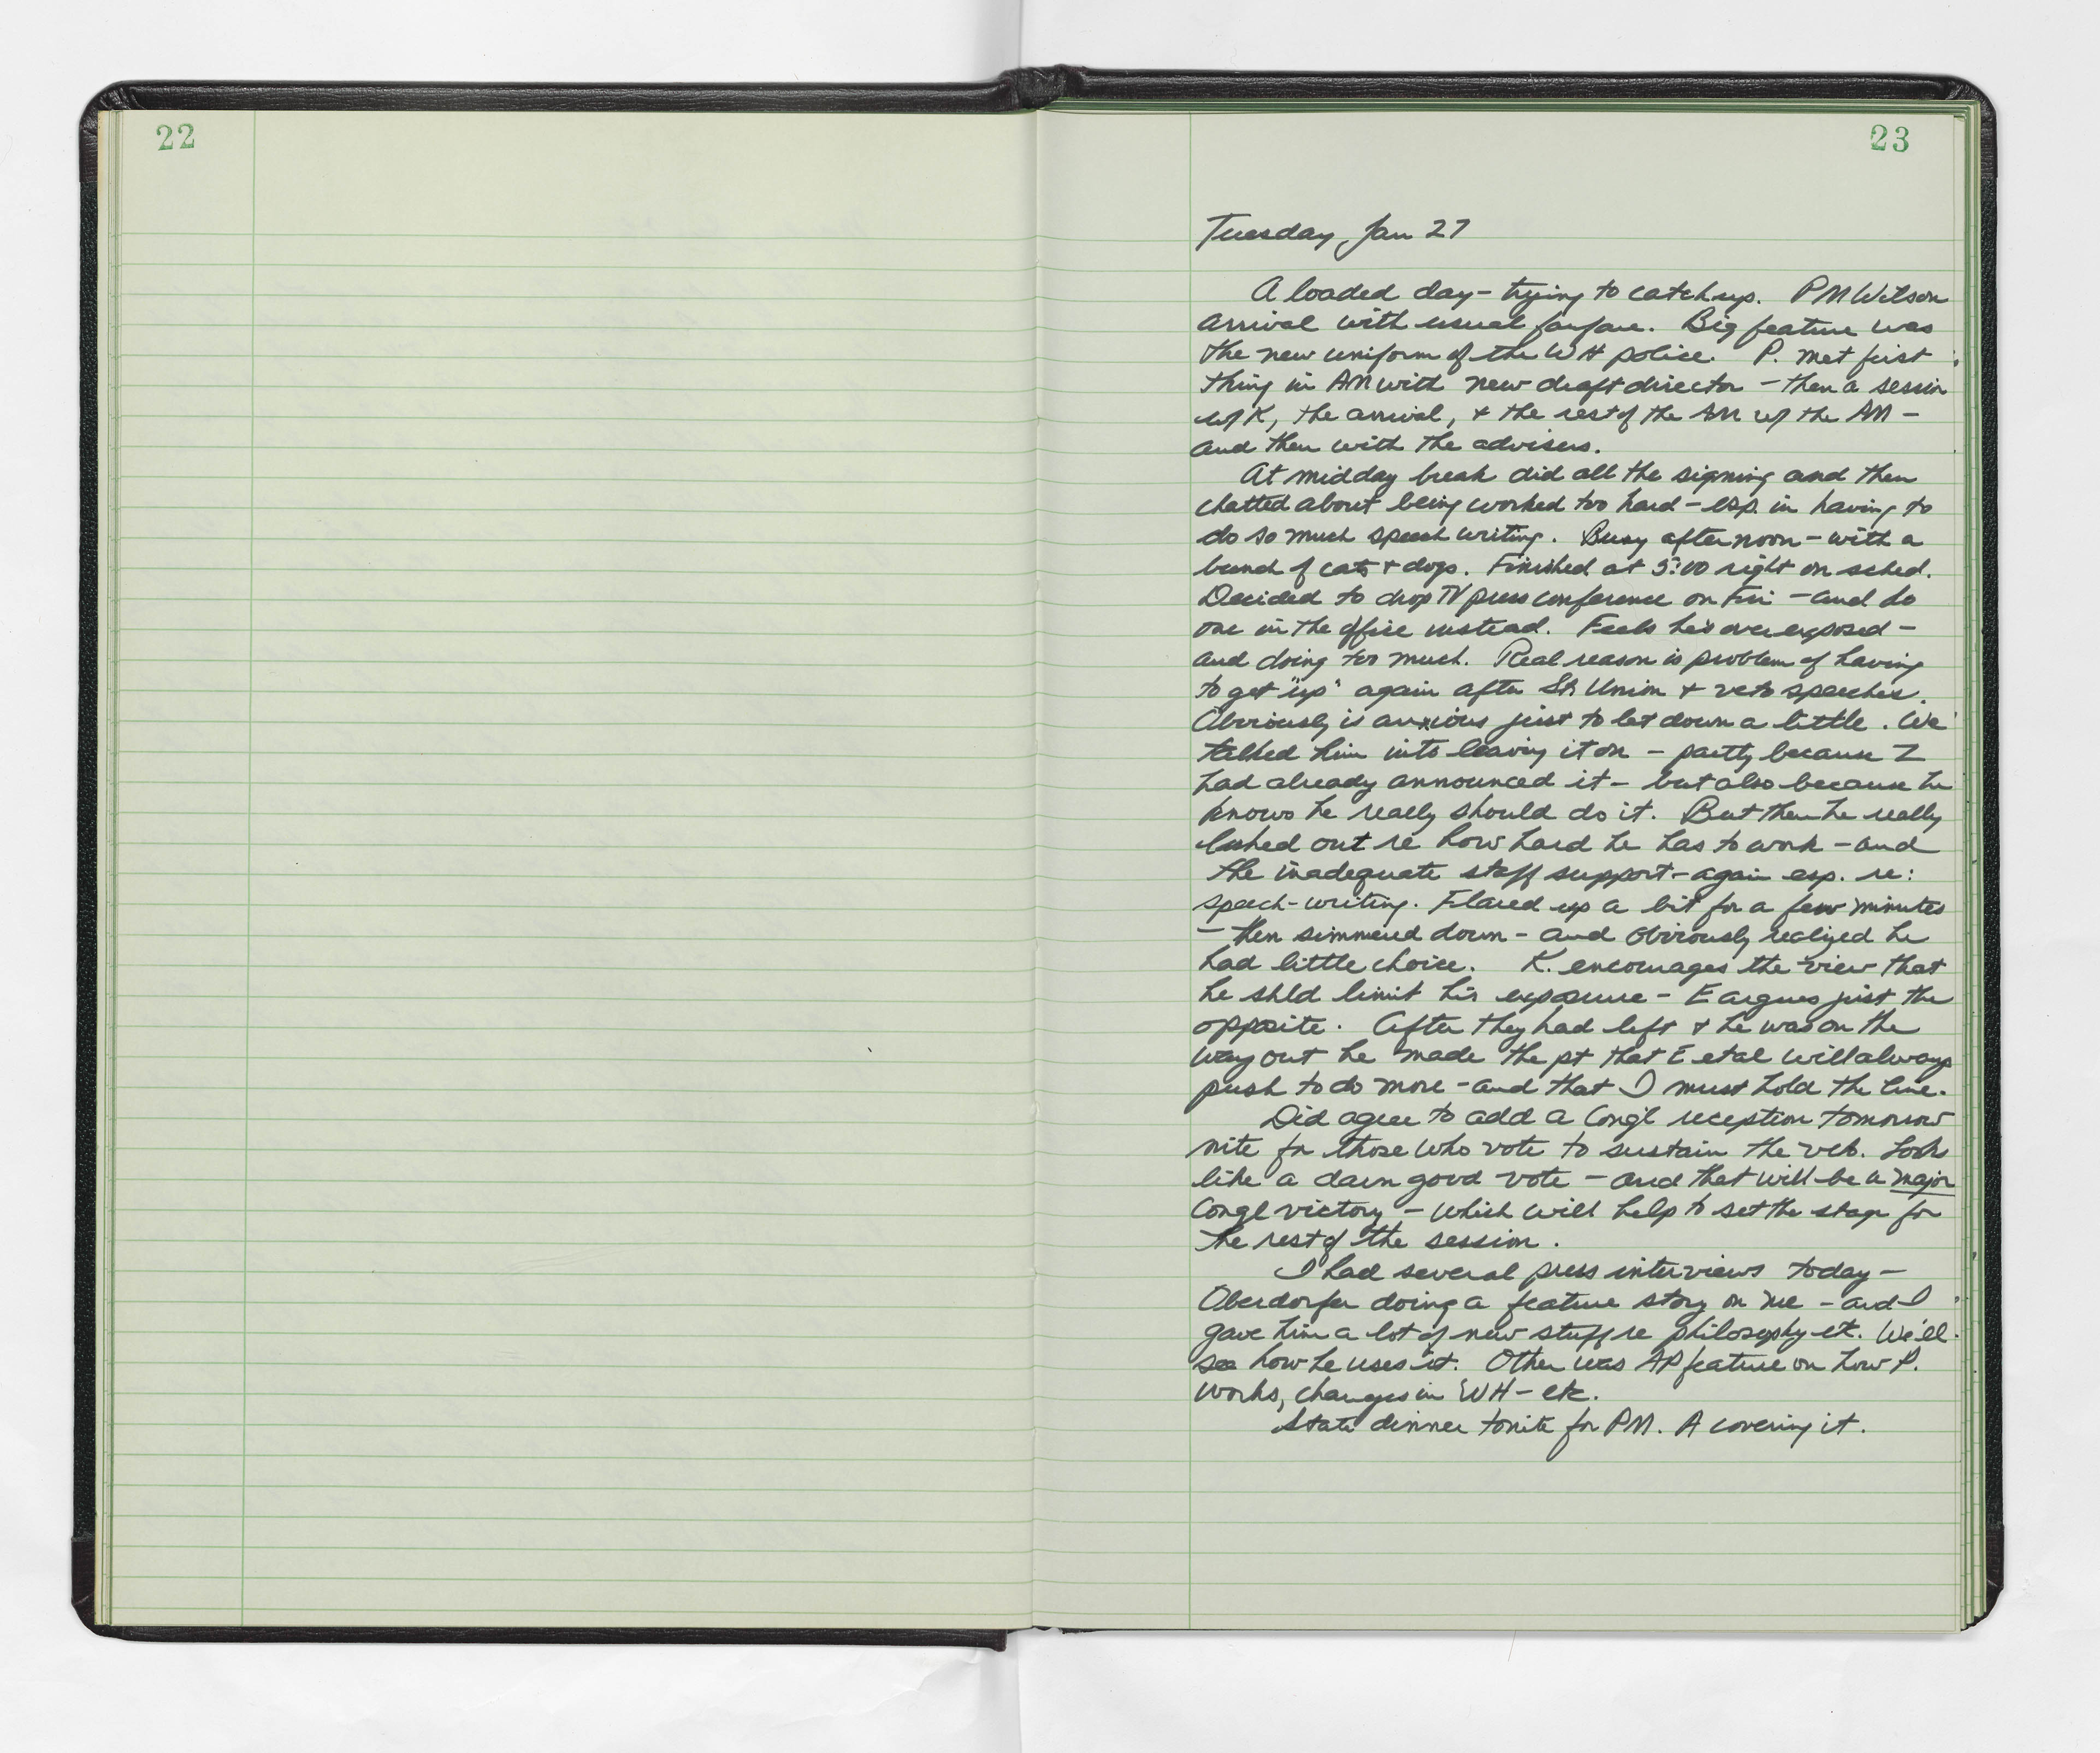 22
23
Tuesday, Jan 27
A loaded day - trying to catch up. PM Wilson
arrival with usual fanfare. Big feature was
the new uniform of the WH police. P. met first
thing in AM with new draft director - then a session
w/ K, the arrival, + the rest of the AM w/ the PM -
and then with the advisers.
At midday break did all the signing and then
chatted about being worked too hard - esp. in having to
do so much speech writing. Busy afternoon - with a
bunch of cats + dogs. Finished at 5:00 right on sched.
Decided to drop TV press conference on Fri - and do
one in the office instead. Feels he's over exposed -
and doing too much. Real reason is problem of having
to get "up" again after St. Union + veto speeches.
Obviously is anxious just to let down a little. We
talked him into leaving it on - partly because Z
had already announced it - but also because he
knows he really should do it. But then he really
lashed out re how hard he has to work - and
the inadequate staff support - again esp. re:
speech-writing. Flared up a bit for a few minutes
- then simmered down - and obviously realized he
had little choice. K. encourages the view that
he shld limit his exposure - E argues just the
opposite. After they had left + he was on the
way out he made the pt that E et al will always
push to do more - and that I must hold the line.
Did agree to add a Congl reception tomorrow
nite for those who vote to sustain the veto. Looks
like a darn good vote - and that will be a major
Congl victory - which will help to set the stage for
the rest of the session.
I had several press interviews today -
Oberdorfer doing a feature story on me - and I
gave him a lot of new stuff re philosophy etc. We'll
see how he uses it. Other was AP feature on how P.
works, changes in WH - etc.
State dinner tonite for PM. A covering it.